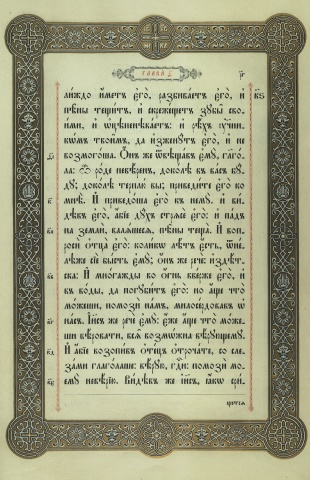 ГЛАВА Ѳ҃.
лиждо и҆́метъ є҆го̀, разбива́етъ є҆го̀, и҆
пѣ̑ны тещи́тъ, и҆ скреже́щетъ зꙋбы̑ свои́-
ми, и҆ ѡ҆цѣпенѣва́етъ: и҆ рѣ́хъ ᲂу҆чн҃и-
кѡ́мъ твои̑мъ, да и҆зженꙋ́тъ є҆го̀: и҆ не
возмого́ша. Ѻ҆́нъ же ѿвѣща́въ є҆мꙋ̀, гл҃го́-
ла: ѽ ро́де невѣ́ренъ, доко́лѣ въ ва́съ бꙋ́-
дꙋ; доко́лѣ терплю̀ вы̀; приведи́те є҆го̀ ко
мнѣ̀. И҆ приведо́ша є҆го̀ къ немꙋ̀. и҆ ви́-
дѣвъ є҆го̀, а҆́бїе дꙋ́хъ стрѧсѐ є҆го̀: и҆ па́дъ
на землѝ, валѧ́шесѧ, пѣ̑ны тещѧ̀. И҆ вопро-
сѝ ѻ҆тца̀ є҆го̀: коли́кѡ лѣ́тъ є҆́сть, ѿне́-
лѣже сїѐ бы́сть є҆мꙋ̀; Ѻ҆́нъ же речѐ: и҆здѣ́т-
ска: И҆ мно́гажды во ѻ҆́гнь вве́рже є҆го̀, и҆
въ во́ды, да погꙋби́тъ є҆го̀: но а҆́ще что̀
мо́жеши, помозѝ на́мъ, милосе́рдовавъ ѡ҆
на́съ. І҆и҃съ же речѐ є҆мꙋ̀: є҆́же а҆́ще что̀ мо́же-
ши вѣ́ровати, всѧ̑ возмѡ́жна вѣ́рꙋющемꙋ.
И҆ а҆́бїе возопи́въ ѻ҆те́цъ ѻ҆троча́те, со сле-
за́ми глаго́лаше: вѣ́рꙋю, гд҇и: помозѝ мо-
емꙋ̀ невѣ́рїю. Ви́дѣвъ же і҆и҃съ, ꙗ҆́кѡ сри́-
щетсѧ